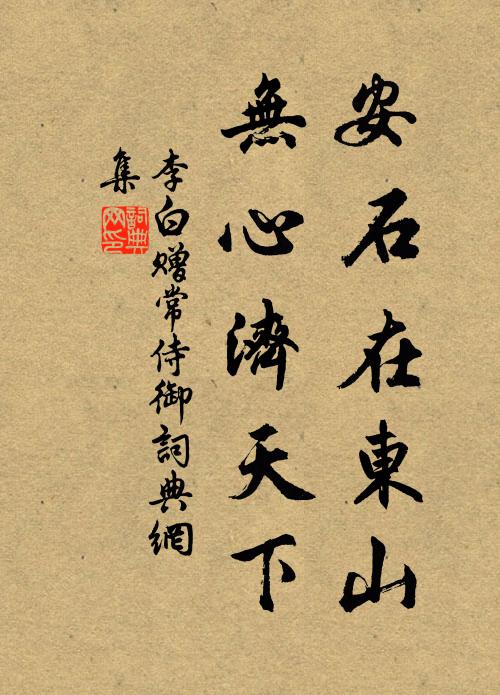 安石在東山
無心濟天下
李白贈常侍御詞典網
集
詞典
网印